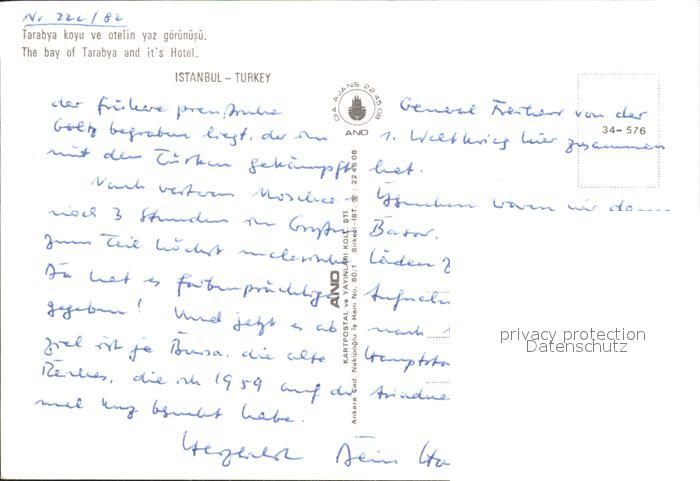 Nr 22c/82
Tarabya koyu ve otelin yaz görünüşü.
The bay of Tarabya and it's Hotel.
ISTANBUL - TURKEY
AJANS 22 45 08
AND
34-576
der frühere preussische General Freiherr von der
Goltz begraben liegt, der im 1. Weltkrieg hier zusammen
mit den Türken gekämpft hat.
Nach weiteren Moscheen waren wir dann
noch 3 Stunden im Großen Basar.
zum Teil höchst malerische Läden
Da hat es farbenprächtige Aufnah
gegeben! Und jetzt es ab nach
Ziel ist ja Bursa, die alte Hauptsta
Reiches, die ich 1959 auf der Ariadne
mal kurz besucht habe.
Herzlichst Dein
AND
KARTPOSTAL ve YAYINLARI KOLL. ŞTİ.
Ankara Cad. Nakipoğlu İş Hanı No. 60/1 Sirkeci-İST. 22 45 08
privacy protection
Datenschutz